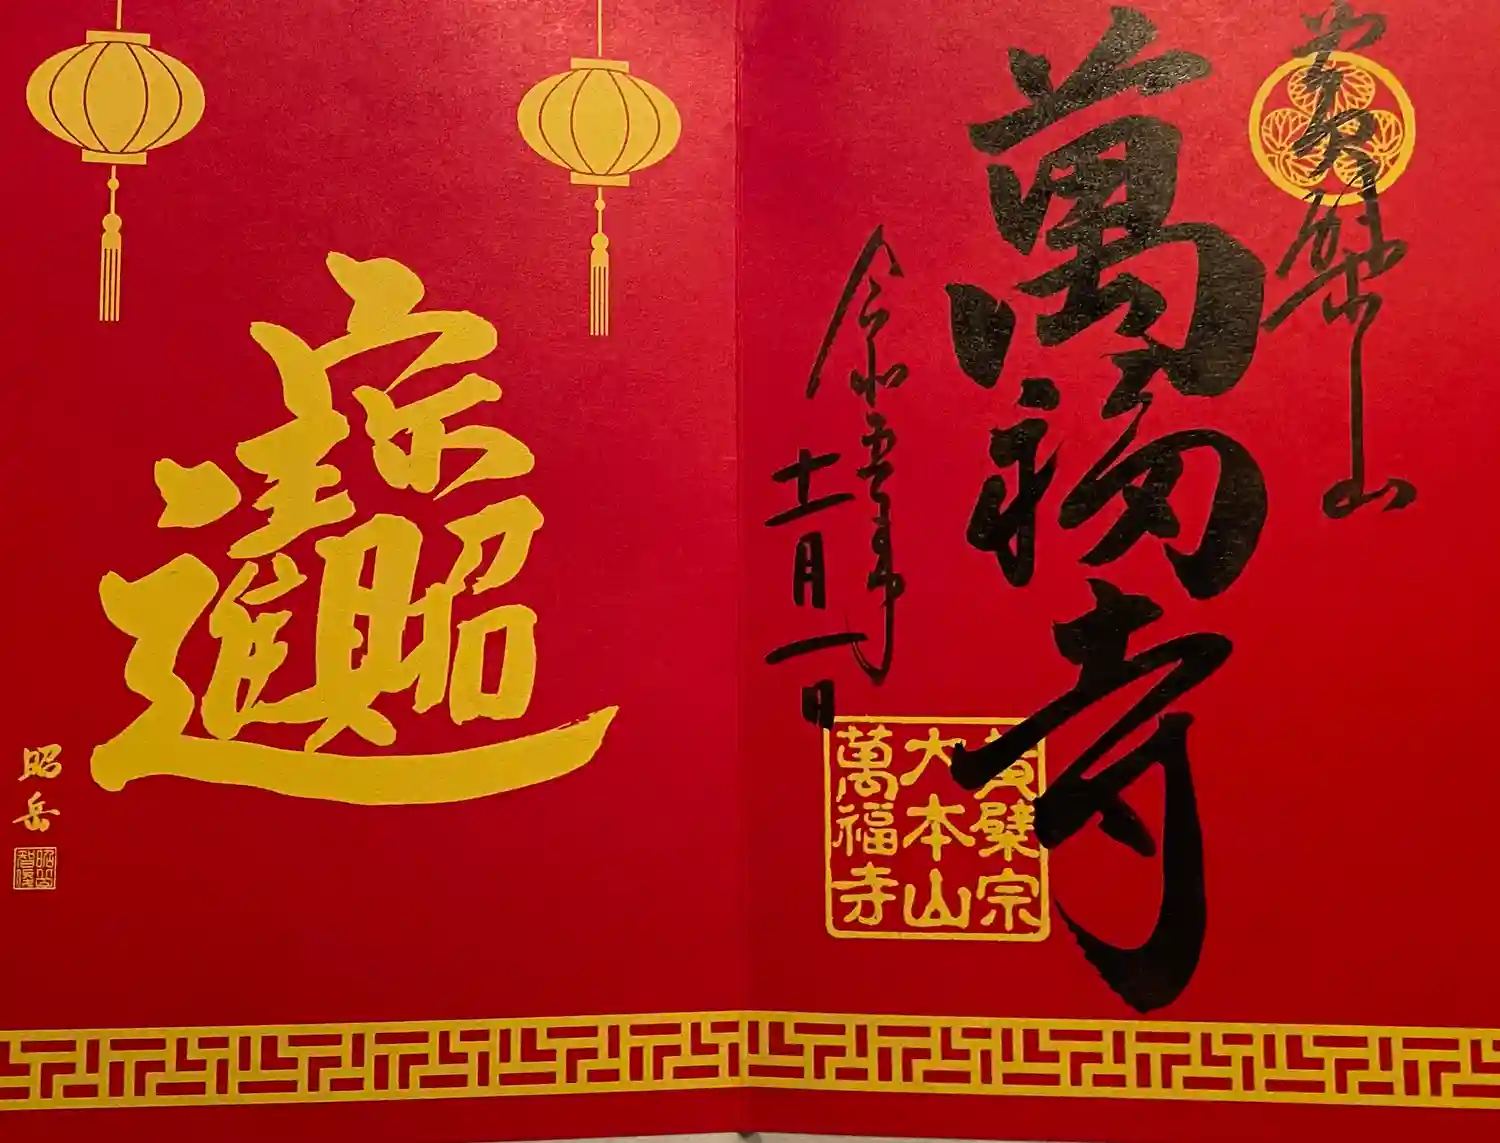 黄檗山
萬福寺
令和五年
十一月一日
黄檗宗
大本山
萬福寺
招財進寶
昭岳